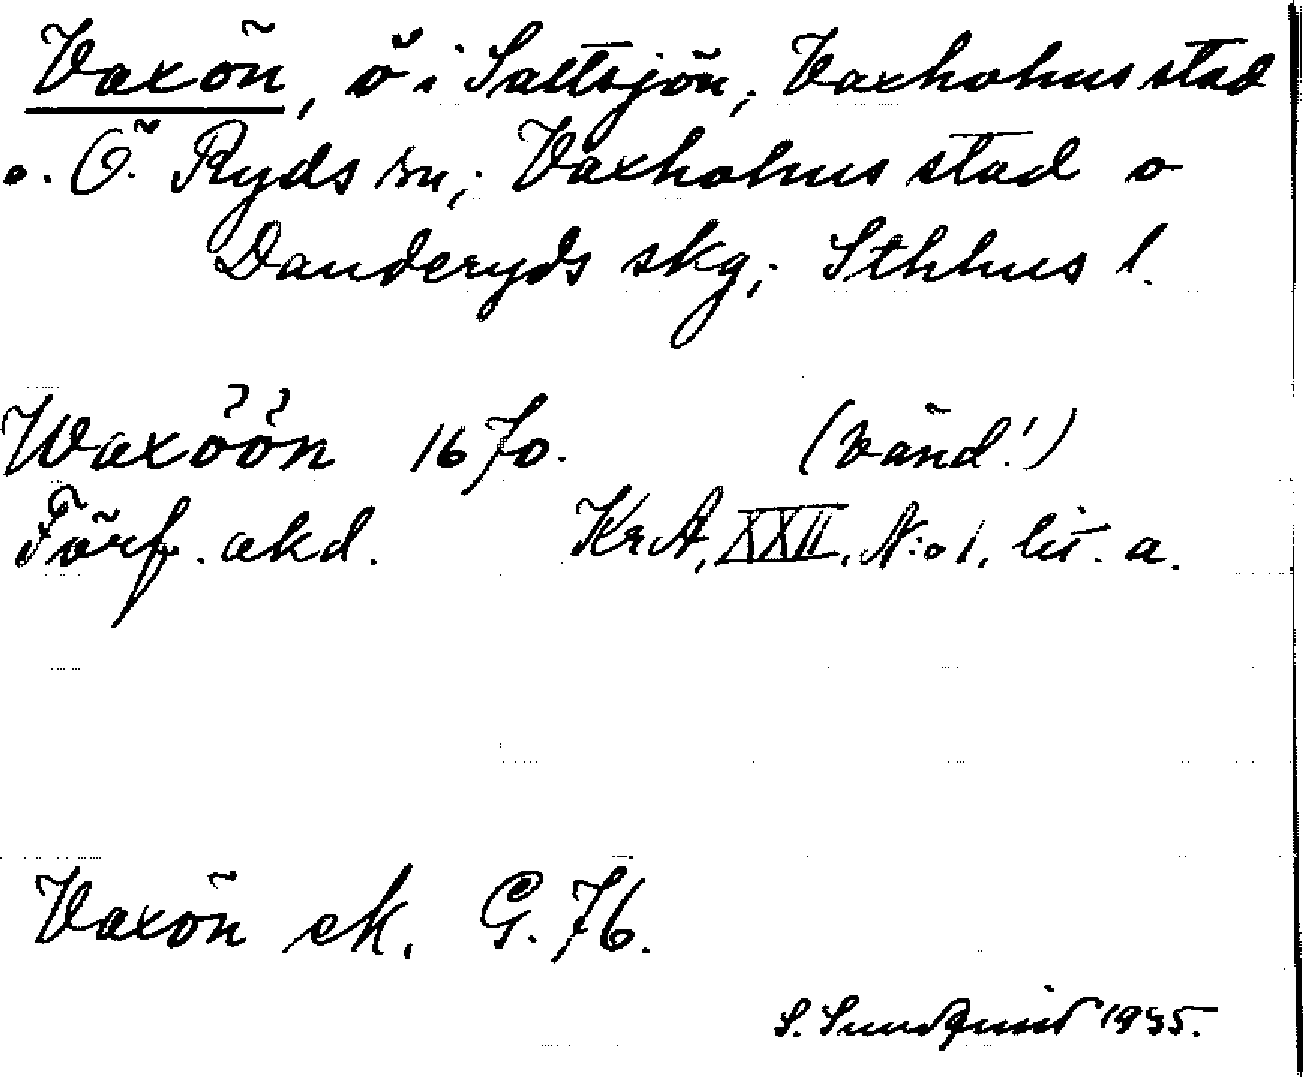 Vaxön, ö i Saltsjön; Vaxholms stad
o. Ö. Ryds sn; Vaxholms stad o
Danderyds skg; Sthlms l.
Waxöön 1670. (Vänd!)
Förf. akd. KrA, XXII, N:o 1, lit. a.
Vaxön ek. G. 76.
S. Sundquist 1935.